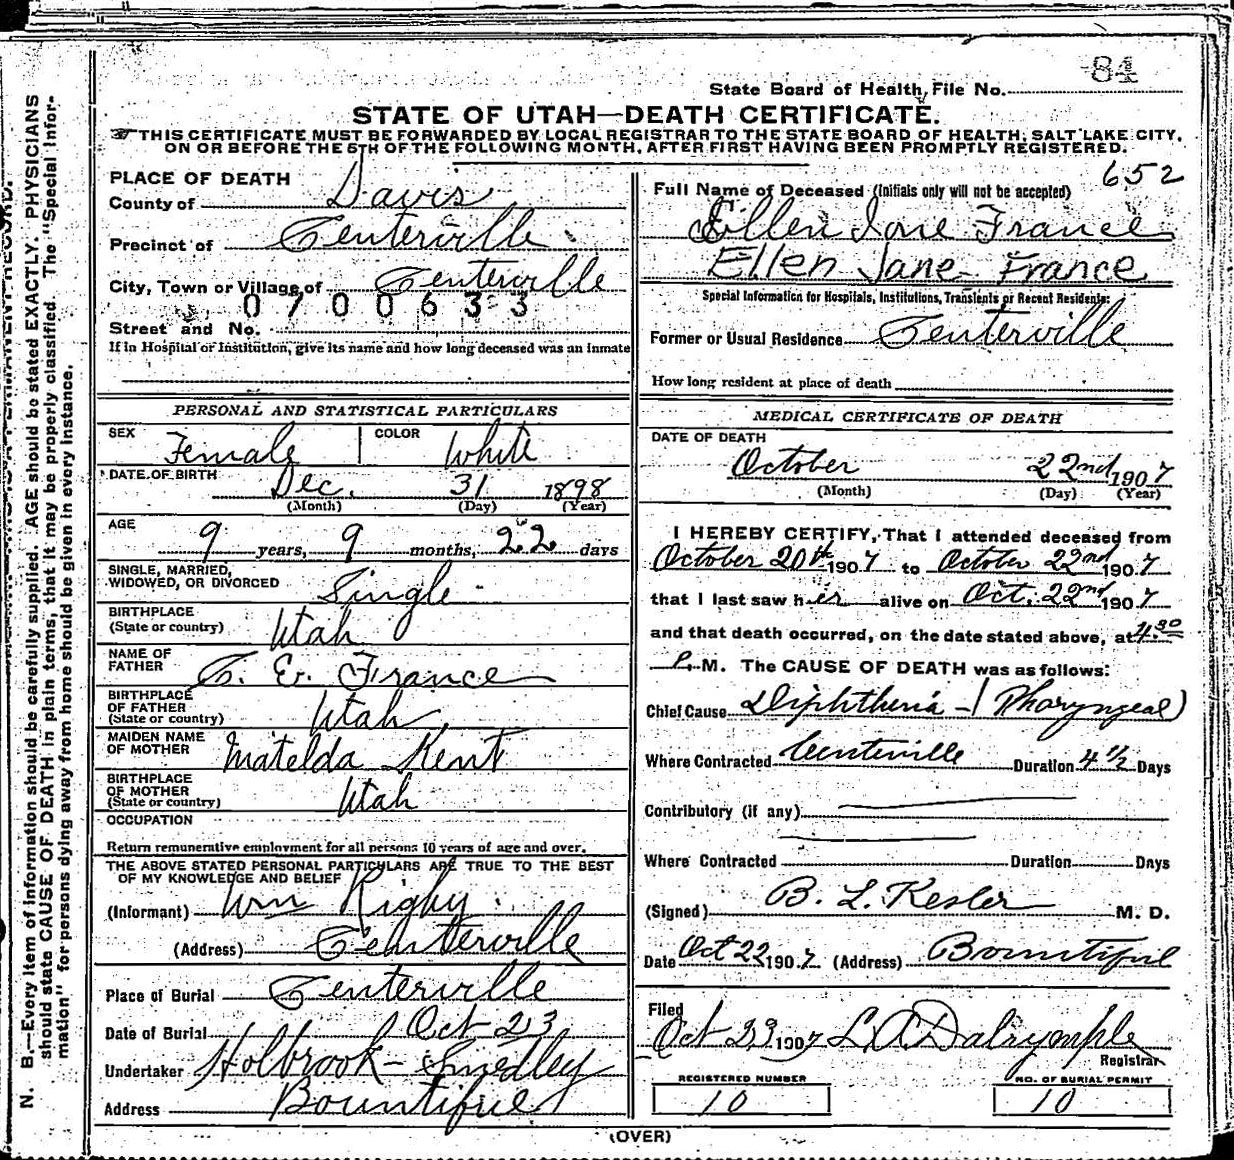 84
State Board of Health, File No.
STATE OF UTAH—DEATH CERTIFICATE.
THIS CERTIFICATE MUST BE FORWARDED BY LOCAL REGISTRAR TO THE STATE BOARD OF HEALTH, SALT LAKE CITY,
ON OR BEFORE THE 5TH OF THE FOLLOWING MONTH, AFTER FIRST HAVING BEEN PROMPTLY REGISTERED.
N. B.—Every item of information should be carefully supplied. AGE should be stated EXACTLY. PHYSICIANS
should state CAUSE OF DEATH in plain terms, that it may be properly classified. The "Special Infor-
mation" for persons dying away from home should be given in every instance.
PLACE OF DEATH
County of Davis
Precinct of Centerville
City, Town or Village of Centerville
0700633
Street and No.
If in Hospital or Institution, give its name and how long deceased was an inmate
PERSONAL AND STATISTICAL PARTICULARS
SEX Female COLOR White
DATE OF BIRTH Dec. 31 1898
(Month) (Day) (Year)
AGE
9 years, 9 months, 22 days
SINGLE, MARRIED,
WIDOWED, OR DIVORCED Single
BIRTHPLACE
(State or country) Utah
NAME OF
FATHER T. E. France
BIRTHPLACE
OF FATHER
(State or country) Utah
MAIDEN NAME
OF MOTHER Matelda Kent
BIRTHPLACE
OF MOTHER
(State or country) Utah
OCCUPATION
Return remunerative employment for all persons 10 years of age and over.
THE ABOVE STATED PERSONAL PARTICULARS ARE TRUE TO THE BEST
OF MY KNOWLEDGE AND BELIEF
(Informant) Wm Rigby
(Address) Centerville
Place of Burial Centerville
Date of Burial Oct 23
Undertaker Holbrook - Smedley
Address Bountiful
652
Full Name of Deceased (Initials only will not be accepted)
Eillen Jane France
Ellen Jane France
Special Information for Hospitals, Institutions, Transients or Recent Residents:
Former or Usual Residence Centerville
How long resident at place of death
MEDICAL CERTIFICATE OF DEATH
DATE OF DEATH
October 22nd 1907
(Month) (Day) (Year)
I HEREBY CERTIFY, That I attended deceased from
October 20th 1907 to October 22nd 1907
that I last saw her alive on Oct. 22nd 1907
and that death occurred, on the date stated above, at 4.30
P. M. The CAUSE OF DEATH was as follows:
Chief Cause Diphtheria - (Pharyngeal)
Where Contracted Centerville Duration 4 1/2 Days
Contributory (if any)
Where Contracted Duration Days
(Signed) B. L. Kesler M. D.
Date Oct 22 1907 (Address) Bountiful
Filed
Oct 23 1907 L. A. Dalrymple
Registrar
REGISTERED NUMBER
10
NO. OF BURIAL PERMIT
10
(OVER)